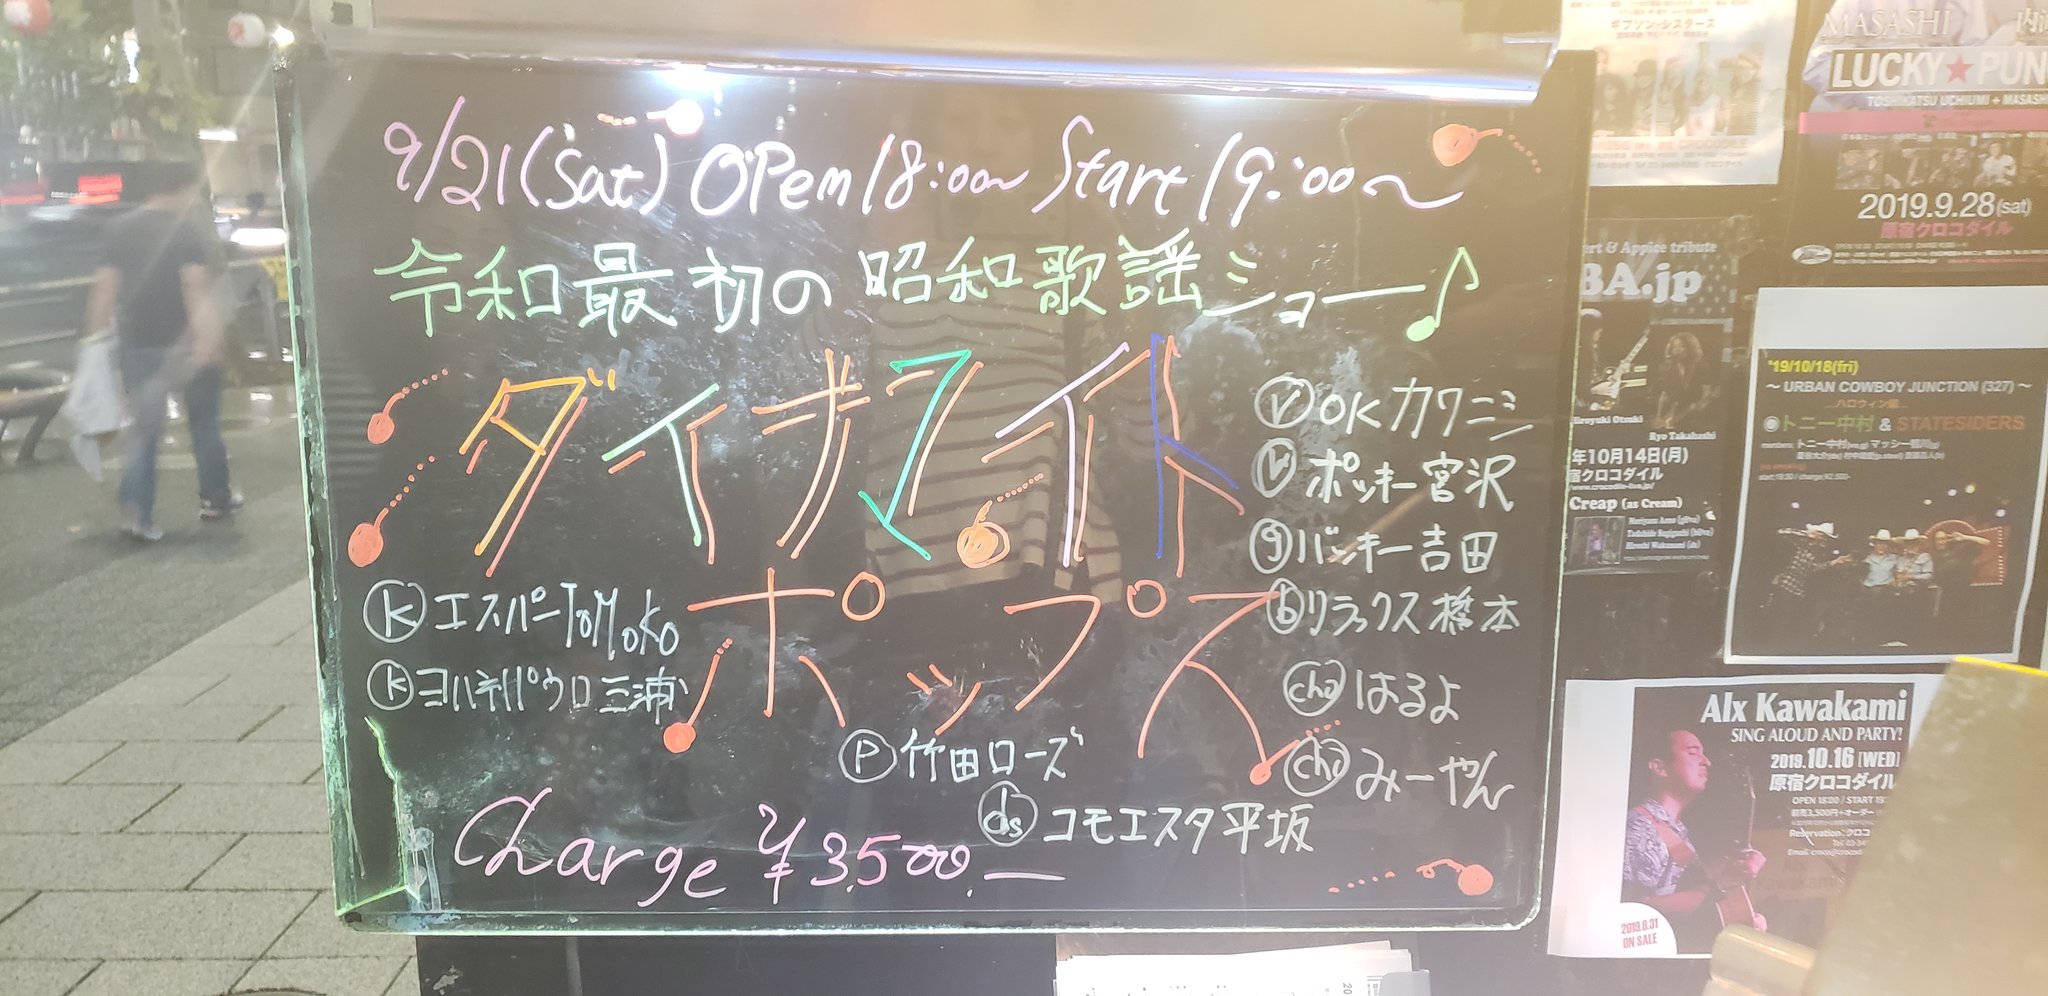 9/21(Sat) OPen 18:00~ Start 19:00~
令和最初の昭和歌謡ショー♪
ダイナマイト
ポップス
Ⓥ OKカワニシ
Ⓥ ポッキー宮沢
ⓖ バッキー吉田
ⓑ リラックス橋本
cho はるよ
cho みーやん
Ⓚ エスパーToMoKo
ⓚ ヨハネパウロ三浦
Ⓟ 竹田ローズ
ds コモエスタ平坂
Charge ¥3,500.—
ギブソン・シスターズ
MASASHI
LUCKY★PUN
TOSHIKATSU UCHIUMI + MASASH
2019.9.28(sat)
原宿クロコダイル
ert & Appice tribute
BA.jp
Hiroyuki Otsuki
Ryo Takahashi
年10月14日(月)
宿クロコダイル
Creap (as Cream)
'19/10/18(fri)
~ URBAN COWBOY JUNCTION (327) ~
...ハロウィン編...
◉トニー中村 & STATESIDERS
Alx Kawakami
SING ALOUD AND PARTY!
2019.10.16 [WED]
原宿クロコダイル
OPEN 18:00 / START 19:
前売3,500円+オーダー
Reservation: クロコ
2019.8.31
ON SALE